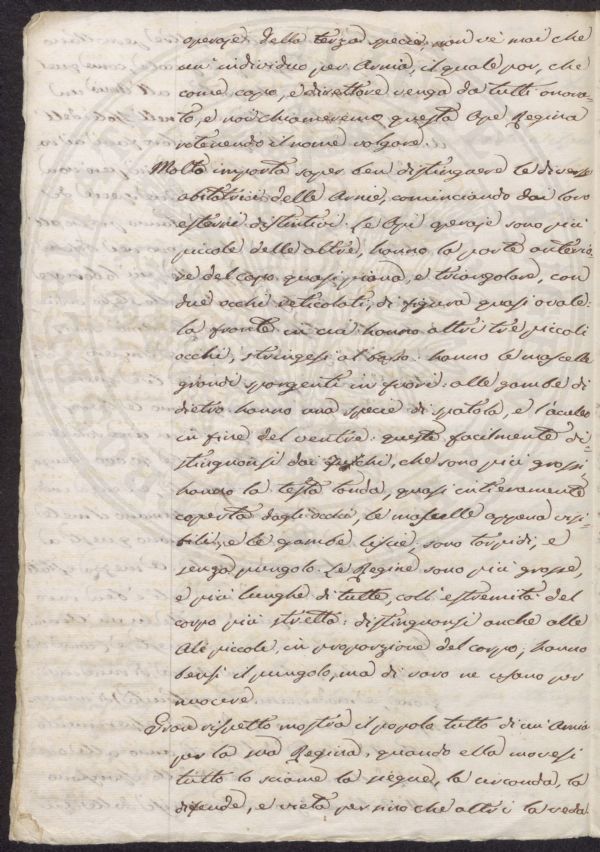 operaje della terza specie, non vi è mai che
un' individuo per Arnia, il quale poi, che
come capo, e direttore venga da tutti onora-
to, e noi chiameremo questa Ape Regina
retenendo il nome volgare.
Molto importa saper ben distinguere le diverse
abitatrici delle Arnie, cominciando dai loro
esterni distintivi. Le Api operaje sono più
picole delle altre, hanno la parte anterio-
re del capo quasi piana, e triangolare, con
due occhi reticolati, di figura quasi ovale:
la fronte in cui hanno altri trè piccoli
occhi, stringesi al basso: hanno le mascelle
grandi sporgenti in fuori: alle gambe di
dietro hanno una specie di spatola, e l'aculeo
in fine del ventre: queste facilmente di-
stinguonsi dai fuchi, che sono più grossi,
hanno la testa tonda, quasi intieramente
coperta dagli occhi, le mascelle appena visi-
bili, e le gambe liscie, sono torpidi, e
senza pungolo. Le Regine sono più grosse,
e più lunghe di tutte, coll' estremità del
corpo più stretta: distinguonsi anche alle
Ale piccole, in proporzione del corpo, hanno
bensi il pungolo, ma di raro ne usano per
nuocere
Gran rispetto mostra il popolo tutto di un' Arnia
per la sua Regina, quando ella movesi
tutto lo sciame la siegue, la circonda, la
difende, e vieta per sino che altri la veda